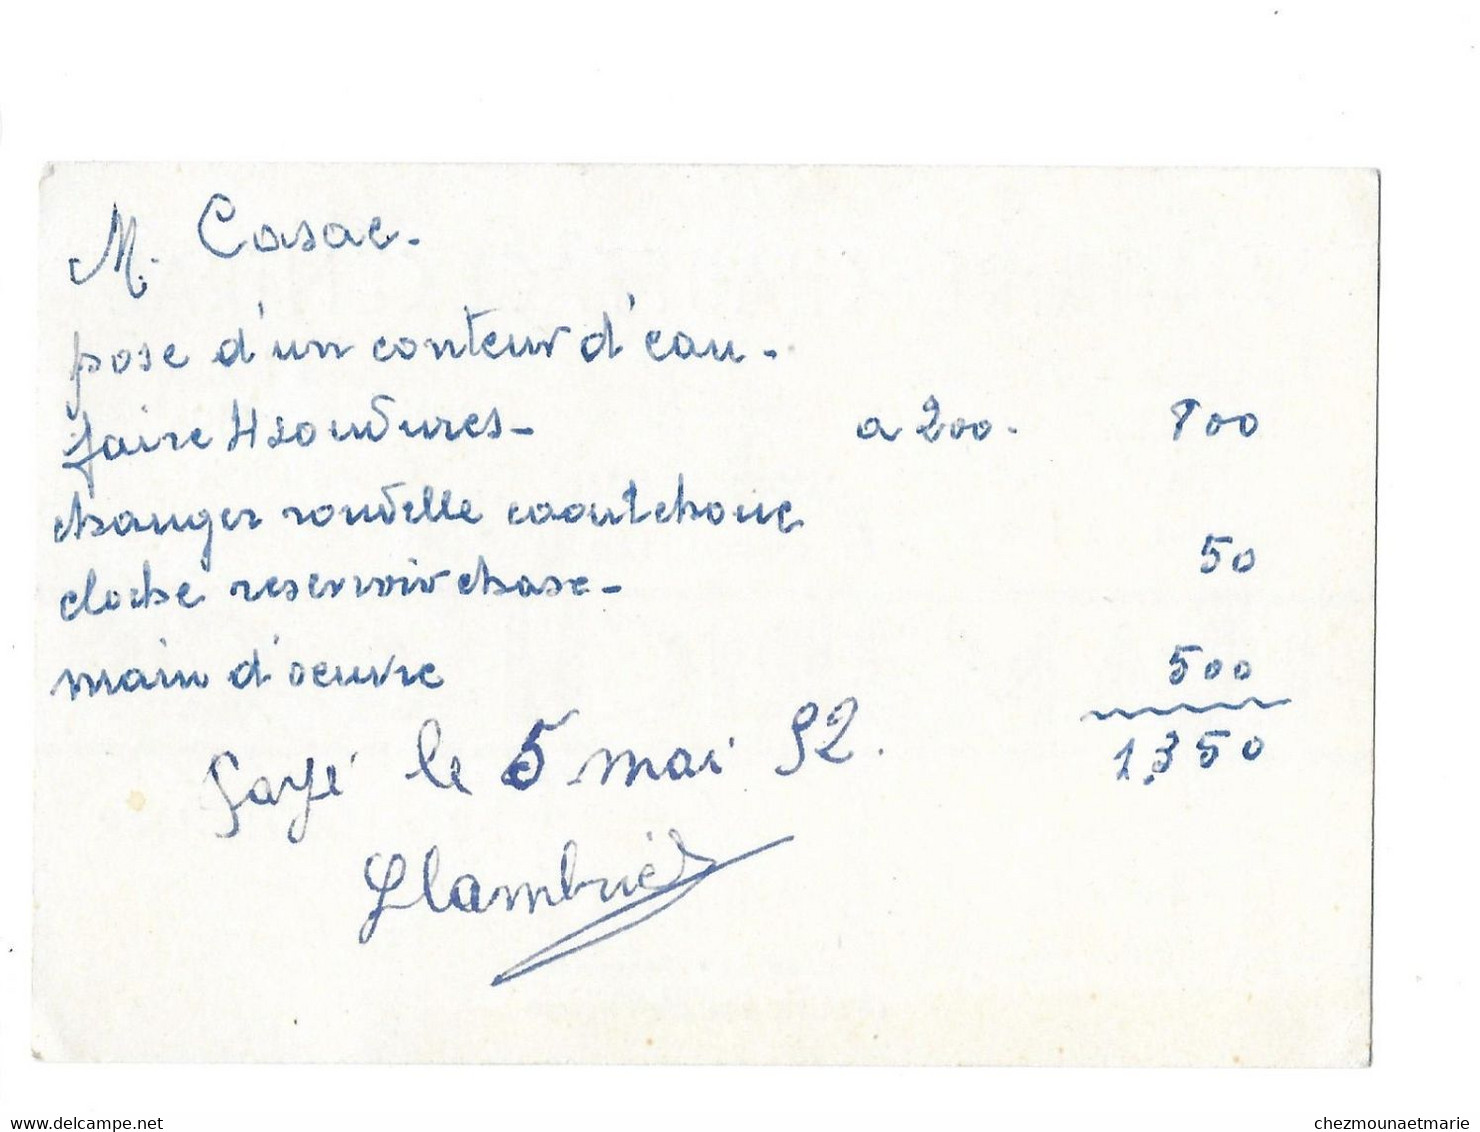 M. Casac.
pose d'un conteur d'eau.
faire 4 soudures - a 200. 800
changer rondelle caoutchouc
cloche reservoir chase - 50
main d'oeuvre 500
1,350
Payé le 5 mai 52.
delcampe.net
chezmounaetmarie